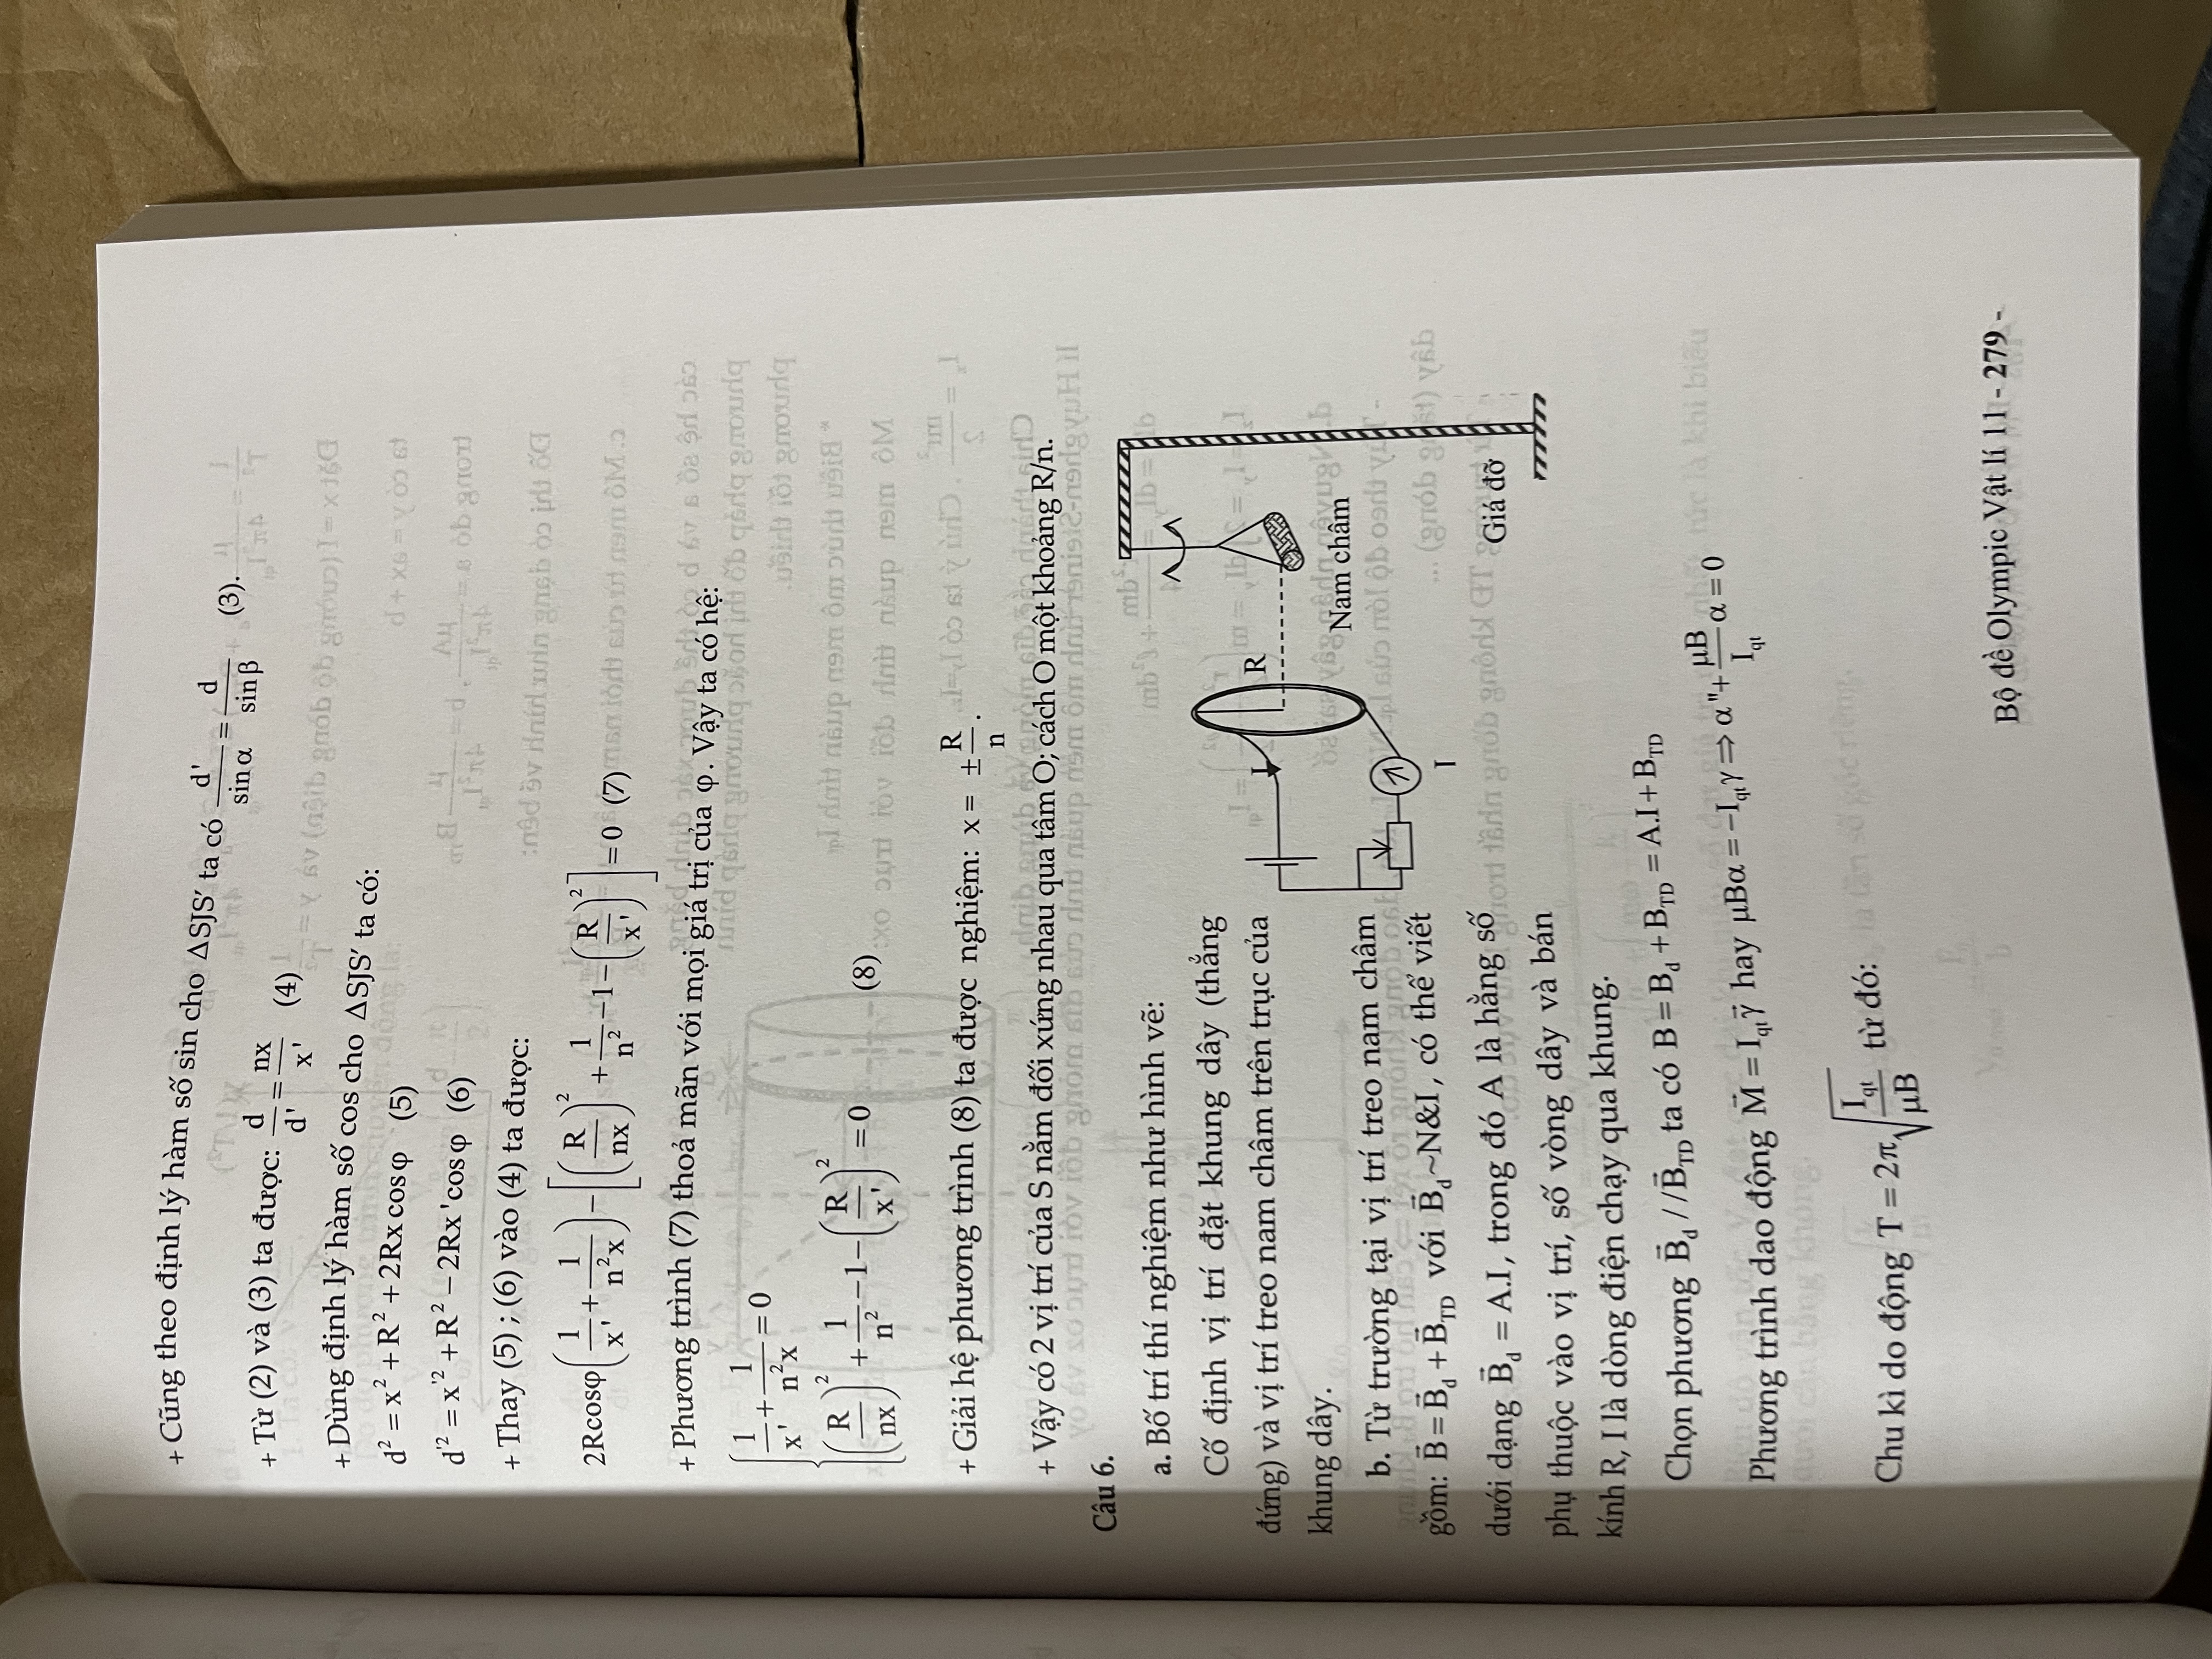 + Cũng theo định lý hàm số sin cho ΔSJS' ta có d'/sinα = d/sinβ (3).
+ Từ (2) và (3) ta được: d/d' = nx/x' (4)
+ Dùng định lý hàm số cos cho ΔSJS' ta có:
d² = x² + R² + 2Rx cosφ (5)
d'² = x'² + R² − 2Rx' cosφ (6)
+ Thay (5) ; (6) vào (4) ta được:
2Rcosφ(1/x' + 1/n²x) − [(R/nx)² + 1/n² − 1 − (R/x')²] = 0 (7)
+ Phương trình (7) thoả mãn với mọi giá trị của φ. Vậy ta có hệ:
{ 1/x' + 1/n²x = 0
(R/nx)² + 1/n² − 1 − (R/x')² = 0 (8)
+ Giải hệ phương trình (8) ta được nghiệm: x = ± R/n.
+ Vậy có 2 vị trí của S nằm đối xứng nhau qua tâm O; cách O một khoảng R/n.
Câu 6.
a. Bố trí thí nghiệm như hình vẽ:
Cố định vị trí đặt khung dây (thẳng
đứng) và vị trí treo nam châm trên trục của
khung dây.
b. Từ trường tại vị trí treo nam châm
gồm: B⃗ = B⃗d + B⃗TD với B⃗d ~ N&I, có thể viết
dưới dạng B⃗d = A.I, trong đó A là hằng số
phụ thuộc vào vị trí, số vòng dây và bán
kính R, I là dòng điện chạy qua khung.
R
Nam châm
Giá đỡ
I
Chọn phương B⃗d // B⃗TD ta có B = Bd + BTD = A.I + BTD
Phương trình dao động M⃗ = Iqt γ⃗ hay μBα = −Iqt γ ⇒ α" + μB/Iqt α = 0
Chu kì do động T = 2π√(Iqt/μB) từ đó:
Bộ đề Olympic Vật lí 11 - 279 -